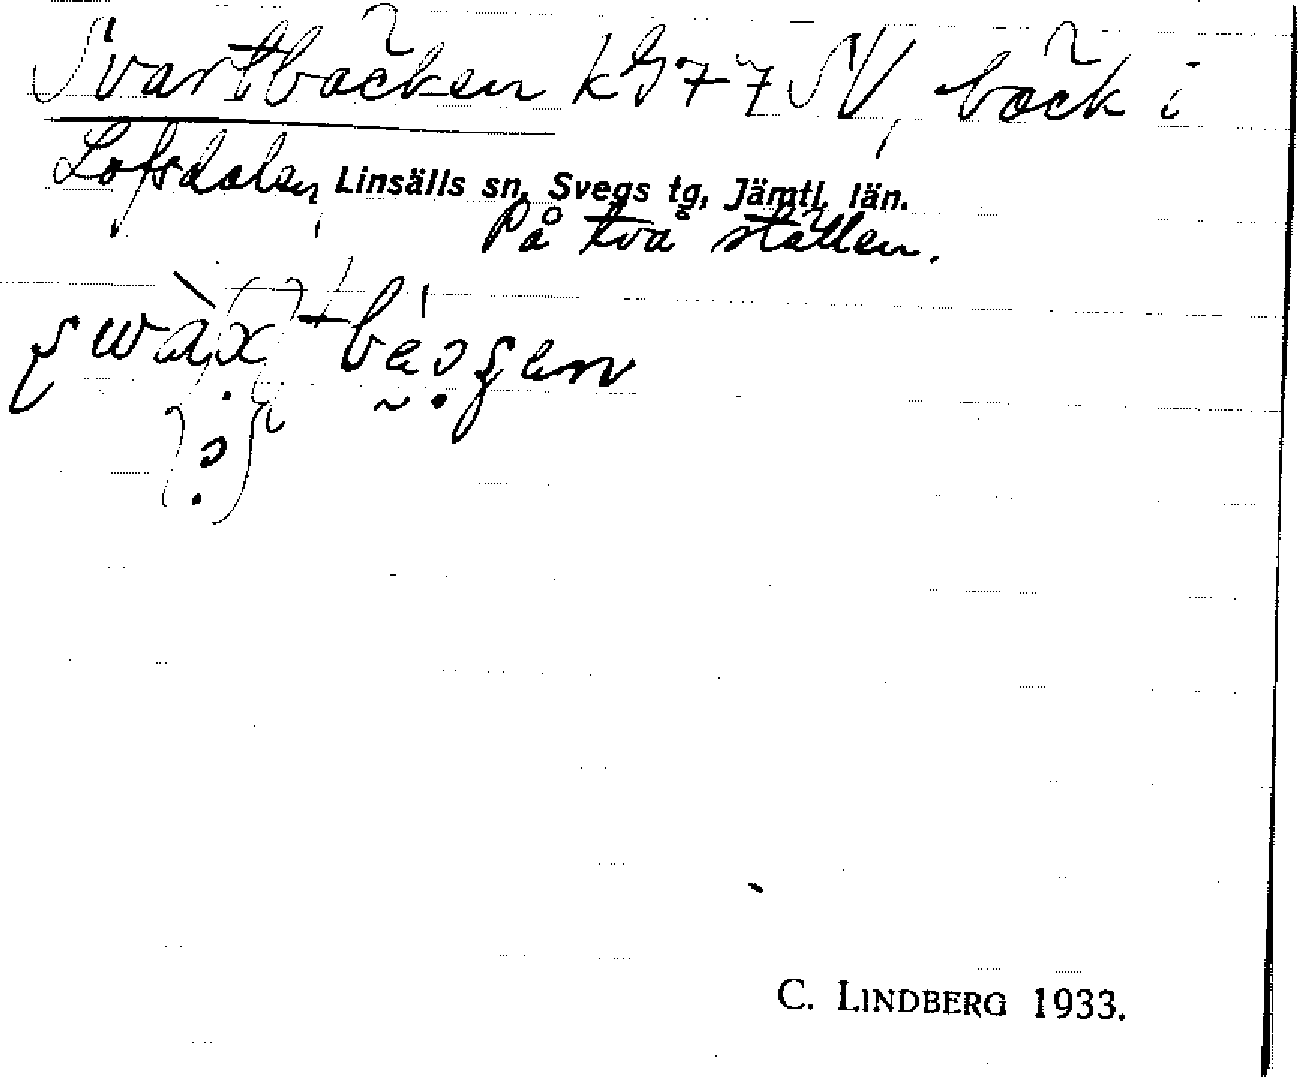 Svartbäcken k 977 SV, bäck i
Lofsdalen, Linsälls sn, Svegs tg, Jämtl. län.
På två ställen.
C. LINDBERG 1933.